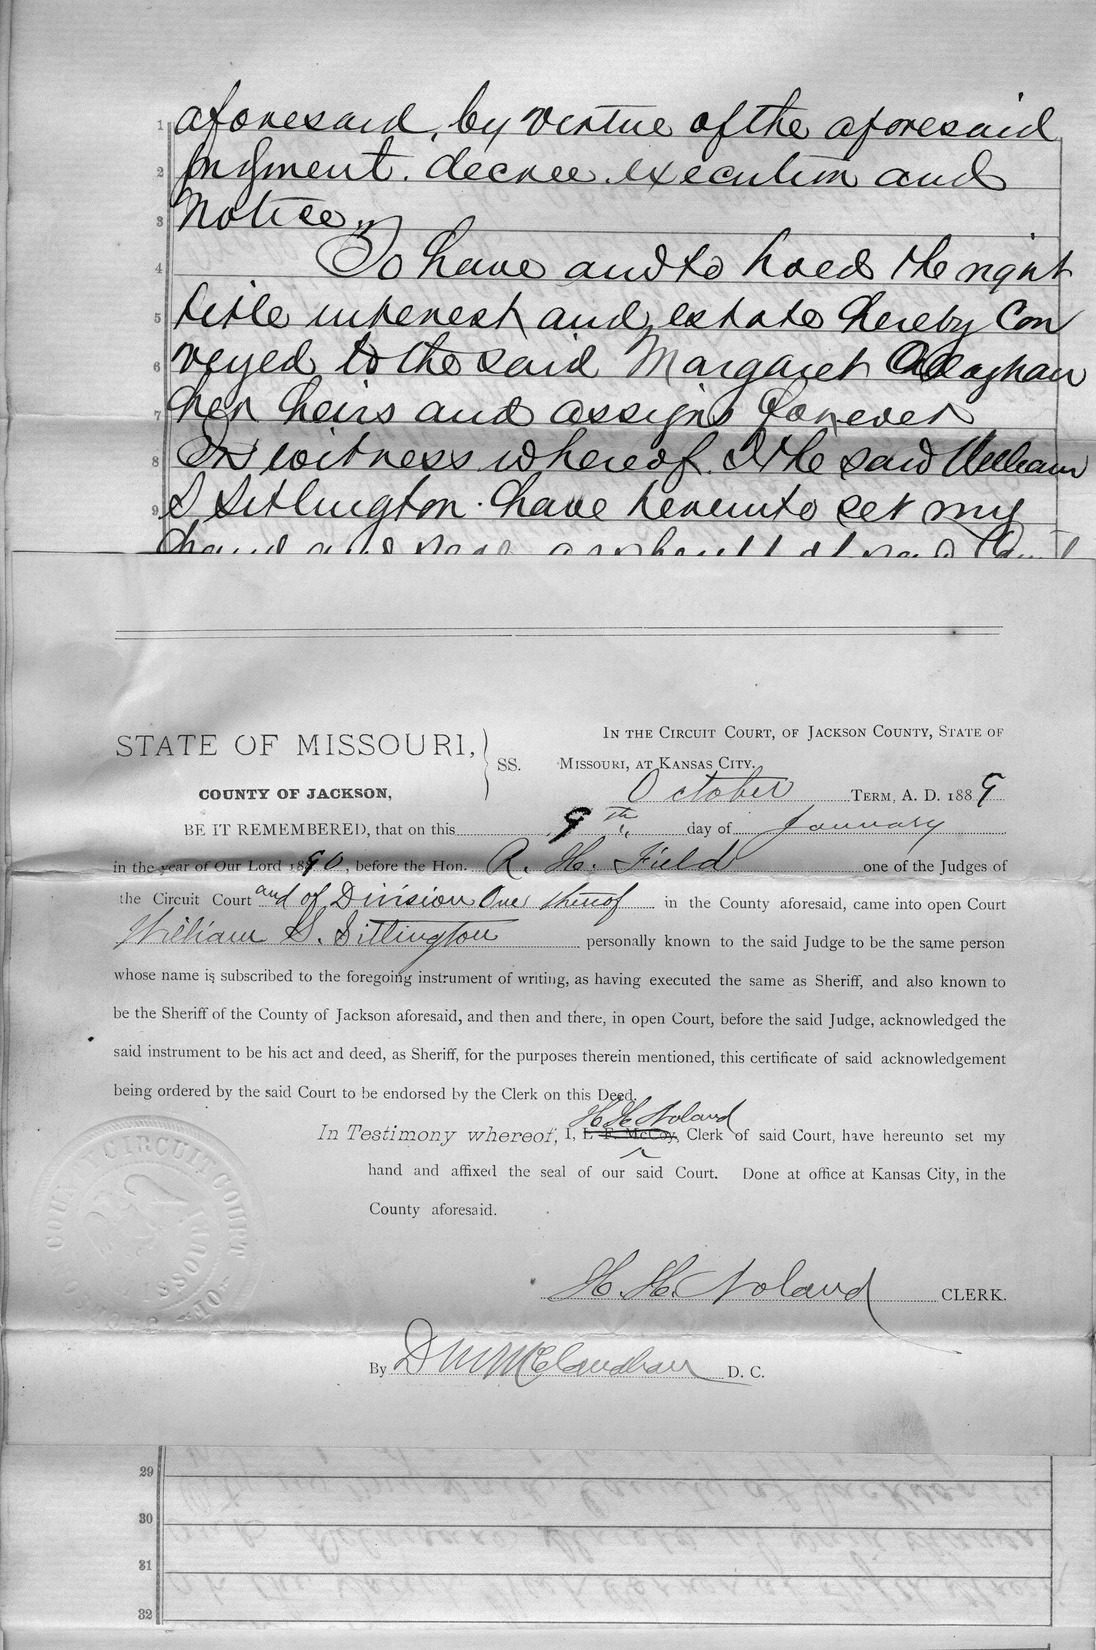 1 aforesaid, by virtue of the aforesaid
2 judgment. decree. execution and
3 notice.
4 To have and to hold the right
5 title interest and estate hereby Con
6 veyed to the said Margaret Callaghan
7 her heirs and assigns forever
8 In witness whereof. I the said William
9 S Sitlington. have hereunto set my
hand and seal
STATE OF MISSOURI,
COUNTY OF JACKSON,
SS.
IN THE CIRCUIT COURT, OF JACKSON COUNTY, STATE OF
MISSOURI, AT KANSAS CITY.
October TERM, A. D. 1889
BE IT REMEMBERED, that on this 9th day of January
in the year of Our Lord 1890, before the Hon. R. H. Field one of the Judges of
the Circuit Court and of Division One thereof in the County aforesaid, came into open Court
William S. Sitlington personally known to the said Judge to be the same person
whose name is subscribed to the foregoing instrument of writing, as having executed the same as Sheriff, and also known to
be the Sheriff of the County of Jackson aforesaid, and then and there, in open Court, before the said Judge, acknowledged the
said instrument to be his act and deed, as Sheriff, for the purposes therein mentioned, this certificate of said acknowledgement
being ordered by the said Court to be endorsed by the Clerk on this Deed.
H. H. Noland
In Testimony whereof, I, L. F. McCoy, Clerk of said Court, have hereunto set my
hand and affixed the seal of our said Court. Done at office at Kansas City, in the
County aforesaid.
H. H. Noland CLERK.
By D W McClanahan D. C.
CIRCUIT COURT
29
30
31
32